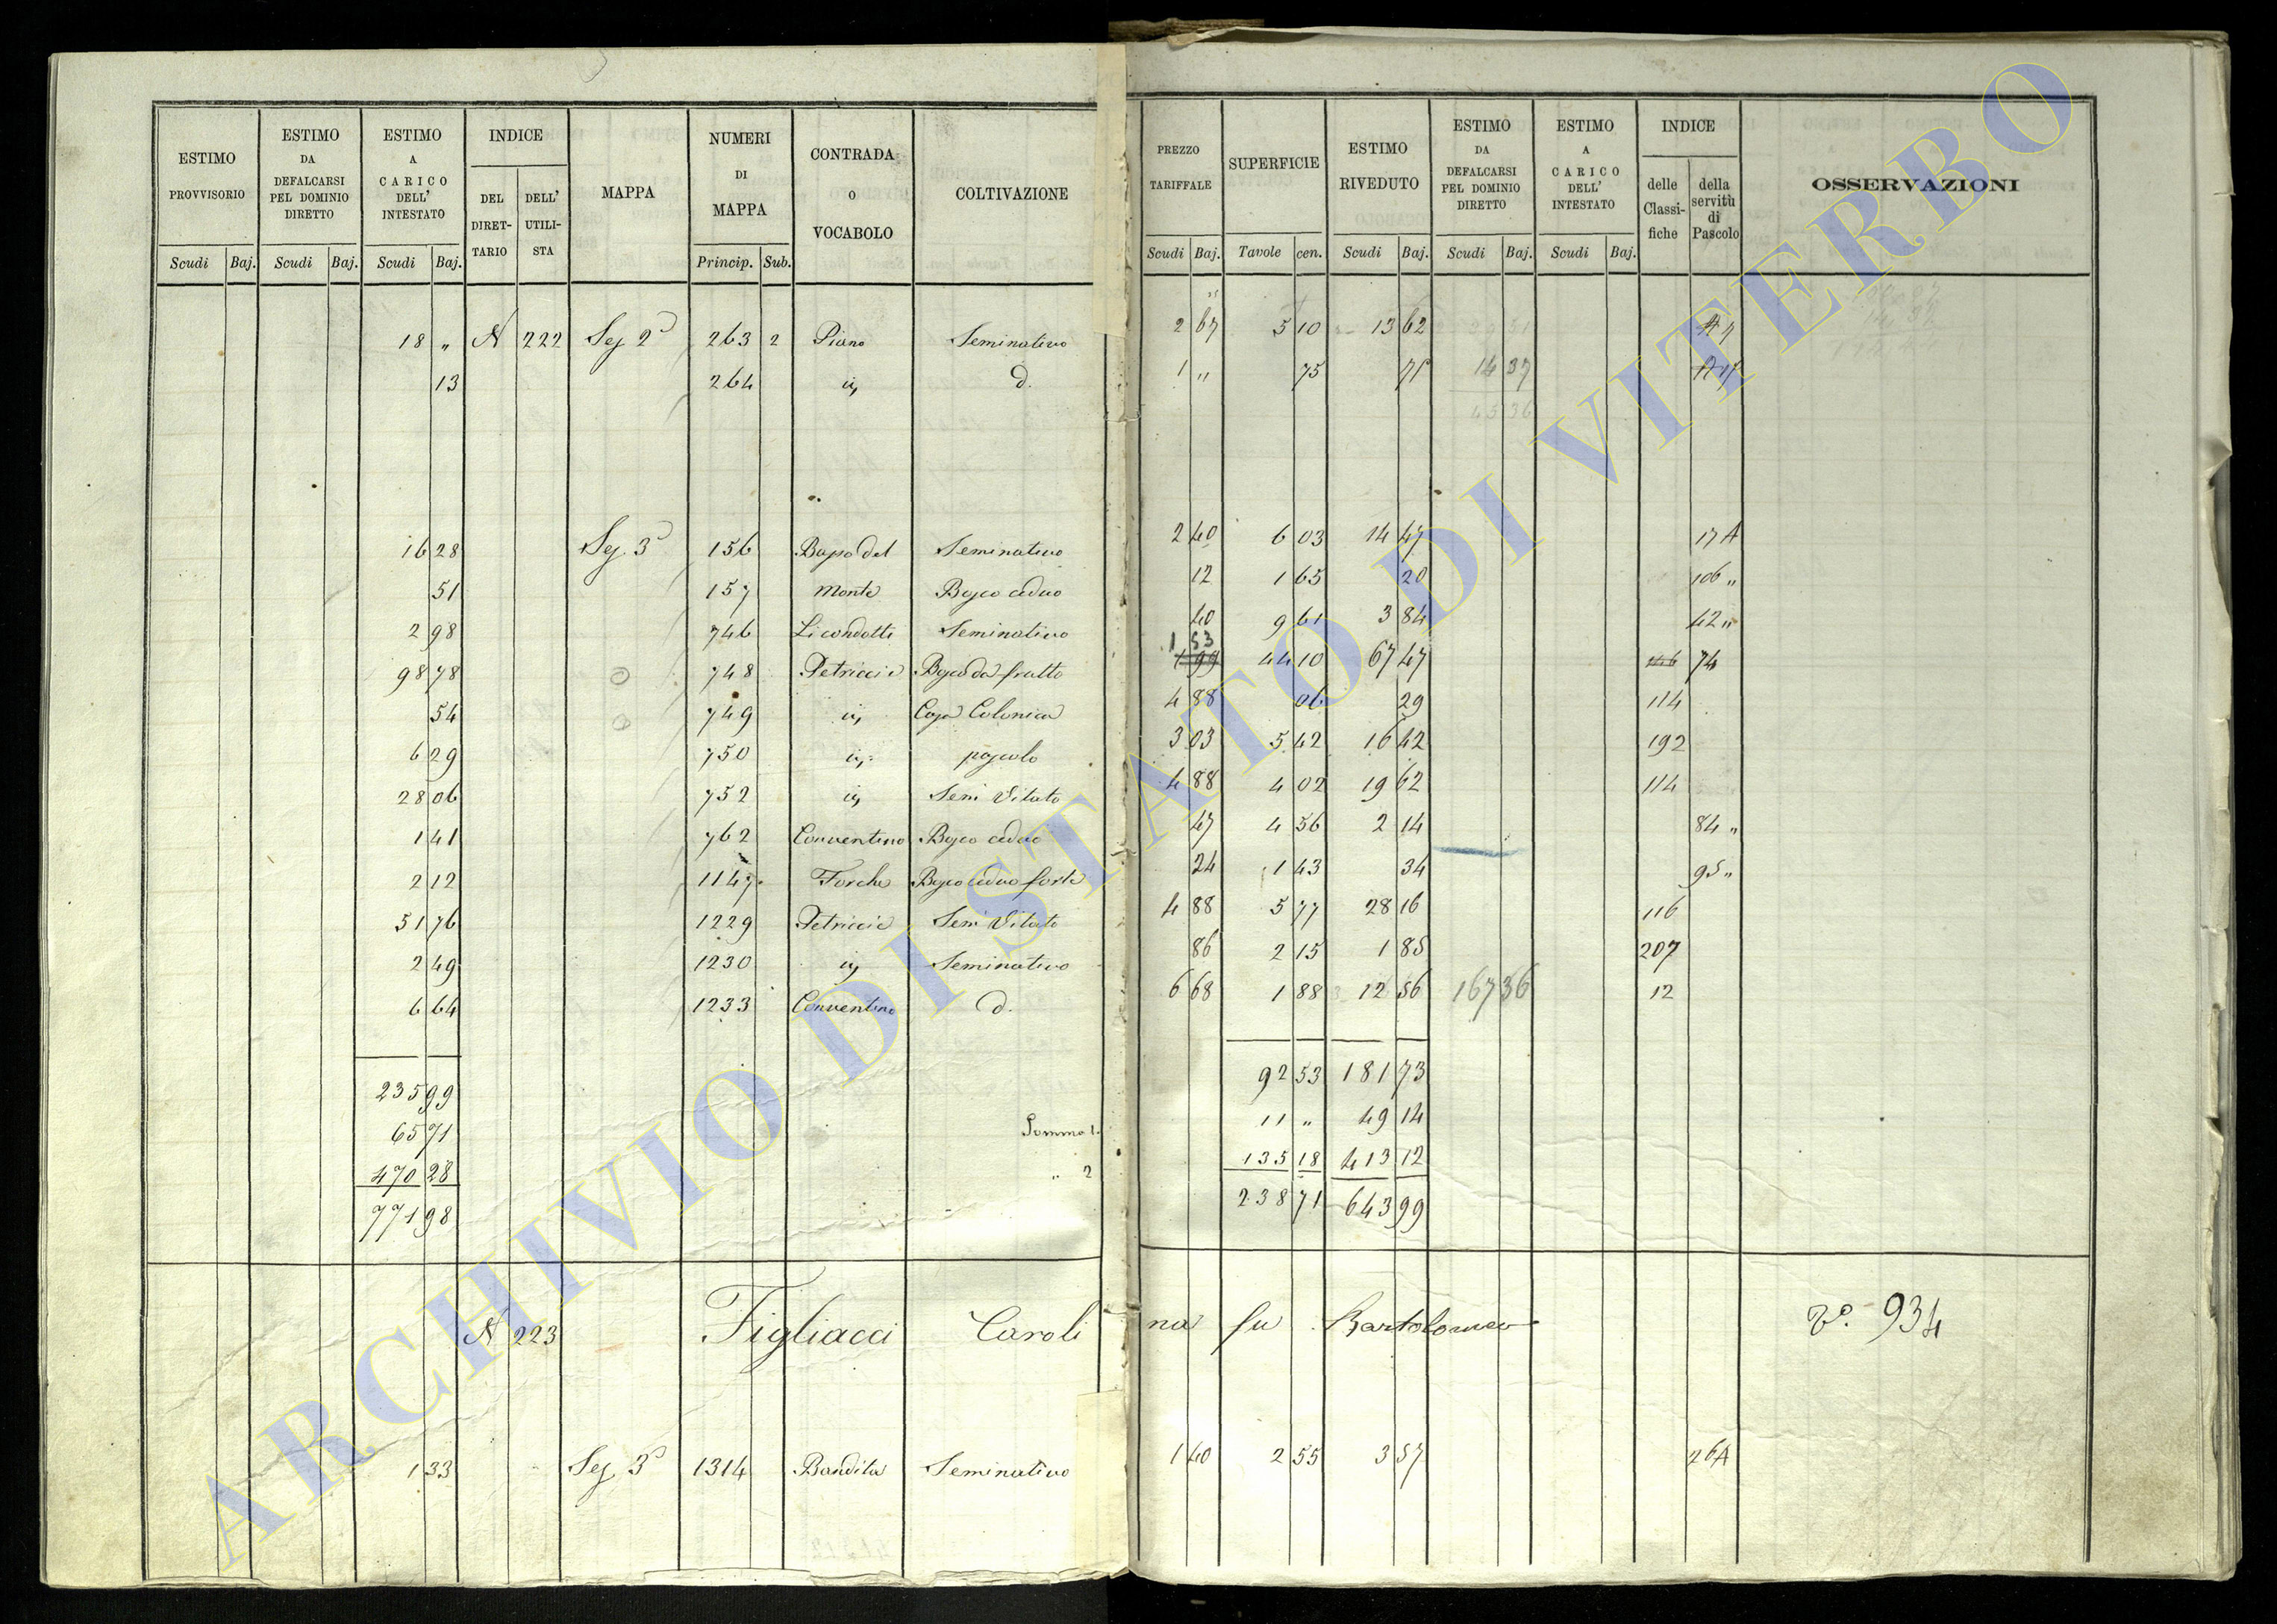 ESTIMO PROVVISORIO Scudi Baj.
ESTIMO DA DEFALCARSI PEL DOMINIO DIRETTO Scudi Baj.
ESTIMO A CARICO DELL' INTESTATO Scudi Baj.
INDICE DEL DIRET-TARIO DELL' UTILI-STA
MAPPA
NUMERI DI MAPPA Princip. Sub.
CONTRADA O VOCABOLO
COLTIVAZIONE
PREZZO TARIFFALE Scudi Baj.
SUPERFICIE Tavole cen.
ESTIMO RIVEDUTO Scudi Baj.
ESTIMO DA DEFALCARSI PEL DOMINIO DIRETTO Scudi Baj.
ESTIMO A CARICO DELL' INTESTATO Scudi Baj.
INDICE delle Classi-fiche della servitù di Pascolo
OSSERVAZIONI
18 „ N 222 Seg 2ª 263 2 Piano Seminativo 2 67 5 10 13 62
13 264 id. 1 „ 75 75 14 37
45 36
16 28 Seg. 3ª 156 Bapo del Seminativo 2 40 6 03 14 47 17 A
51 157 Monte Bosco ceduo 12 1 65 20 106 „
2 98 746 Li condotti Seminativo 40 9 61 3 84 42 „
98 78 748 Petriccie Bosco da frutto 1 53 44 10 67 47 74
54 749 Casa Colonica 4 88 06 29 114
6 29 750 pascolo 3 03 5 42 16 42 192
28 06 752 Sem Vitato 4 88 4 02 19 62 114
1 41 762 Conventino Bosco ceduo 47 4 56 2 14 84 „
2 12 1147 Forche Bosco ceduo forte 24 1 43 34 95 „
51 76 1229 Petriccie Sem Vitato 4 88 5 77 28 16 116
2 49 1230 Seminativo 86 2 15 1 85 207
6 64 1233 Conventino d. 6 68 1 88 12 56 167 36 12
235 99 92 53 181 73
65 71 Somma 1. 11 „ 49 14
470 28 „ 2 135 18 413 12
771 98 238 71 643 99
N 223 Figliacci Carolina fu Bartolomeo Vº. 934
1 33 Seg 3ª 1314 Bandita Seminativo 1 40 2 55 3 57 26 A
ARCHIVIO DI STATO DI VITERBO